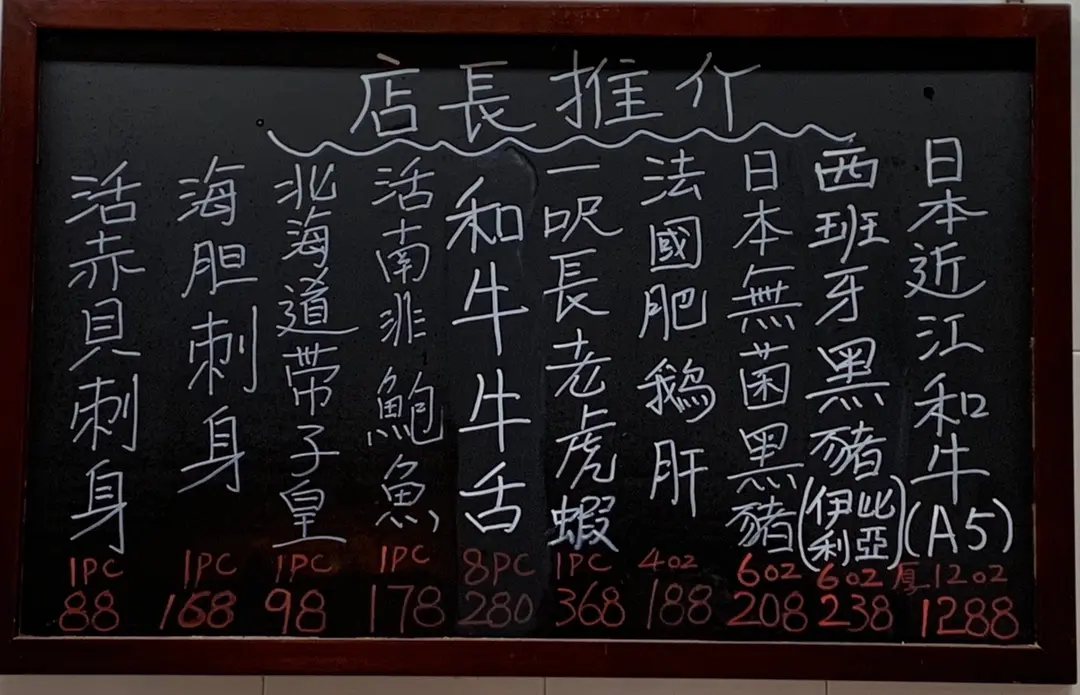 店長推介
日本近江和牛(A5)
厚 12oz
1288
西班牙黑豬(伊比利亞)
6oz
238
日本無菌黑豬
6oz
208
法國肥鵝肝
4oz
188
一呎長老虎蝦
1PC
368
和牛牛舌
8PC
280
活南非鮑魚
1PC
178
北海道帶子皇
1PC
98
海胆刺身
1PC
168
活赤貝刺身
1PC
88